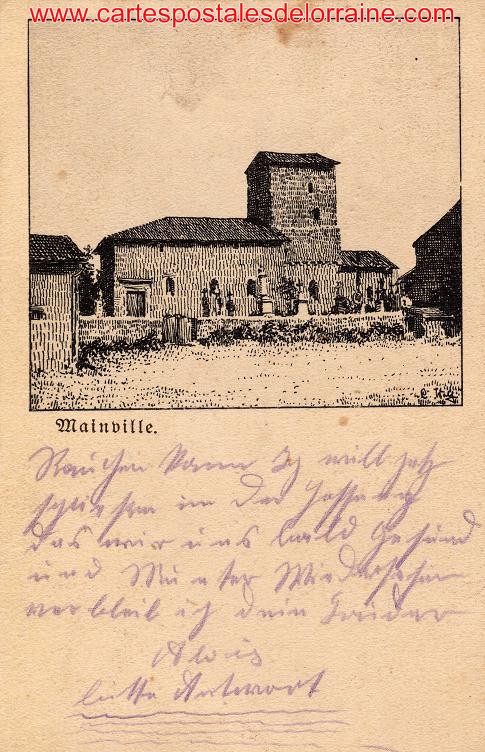 www.cartespostalesdelorraine.com
Mainville.
Rauchen kann Ich will jetz
schliesen in der Hoffnung
das wir uns bald Gesund
und Munter Wiedersehen
verbleib ich dein Bruder
Alois
bitte Antwort